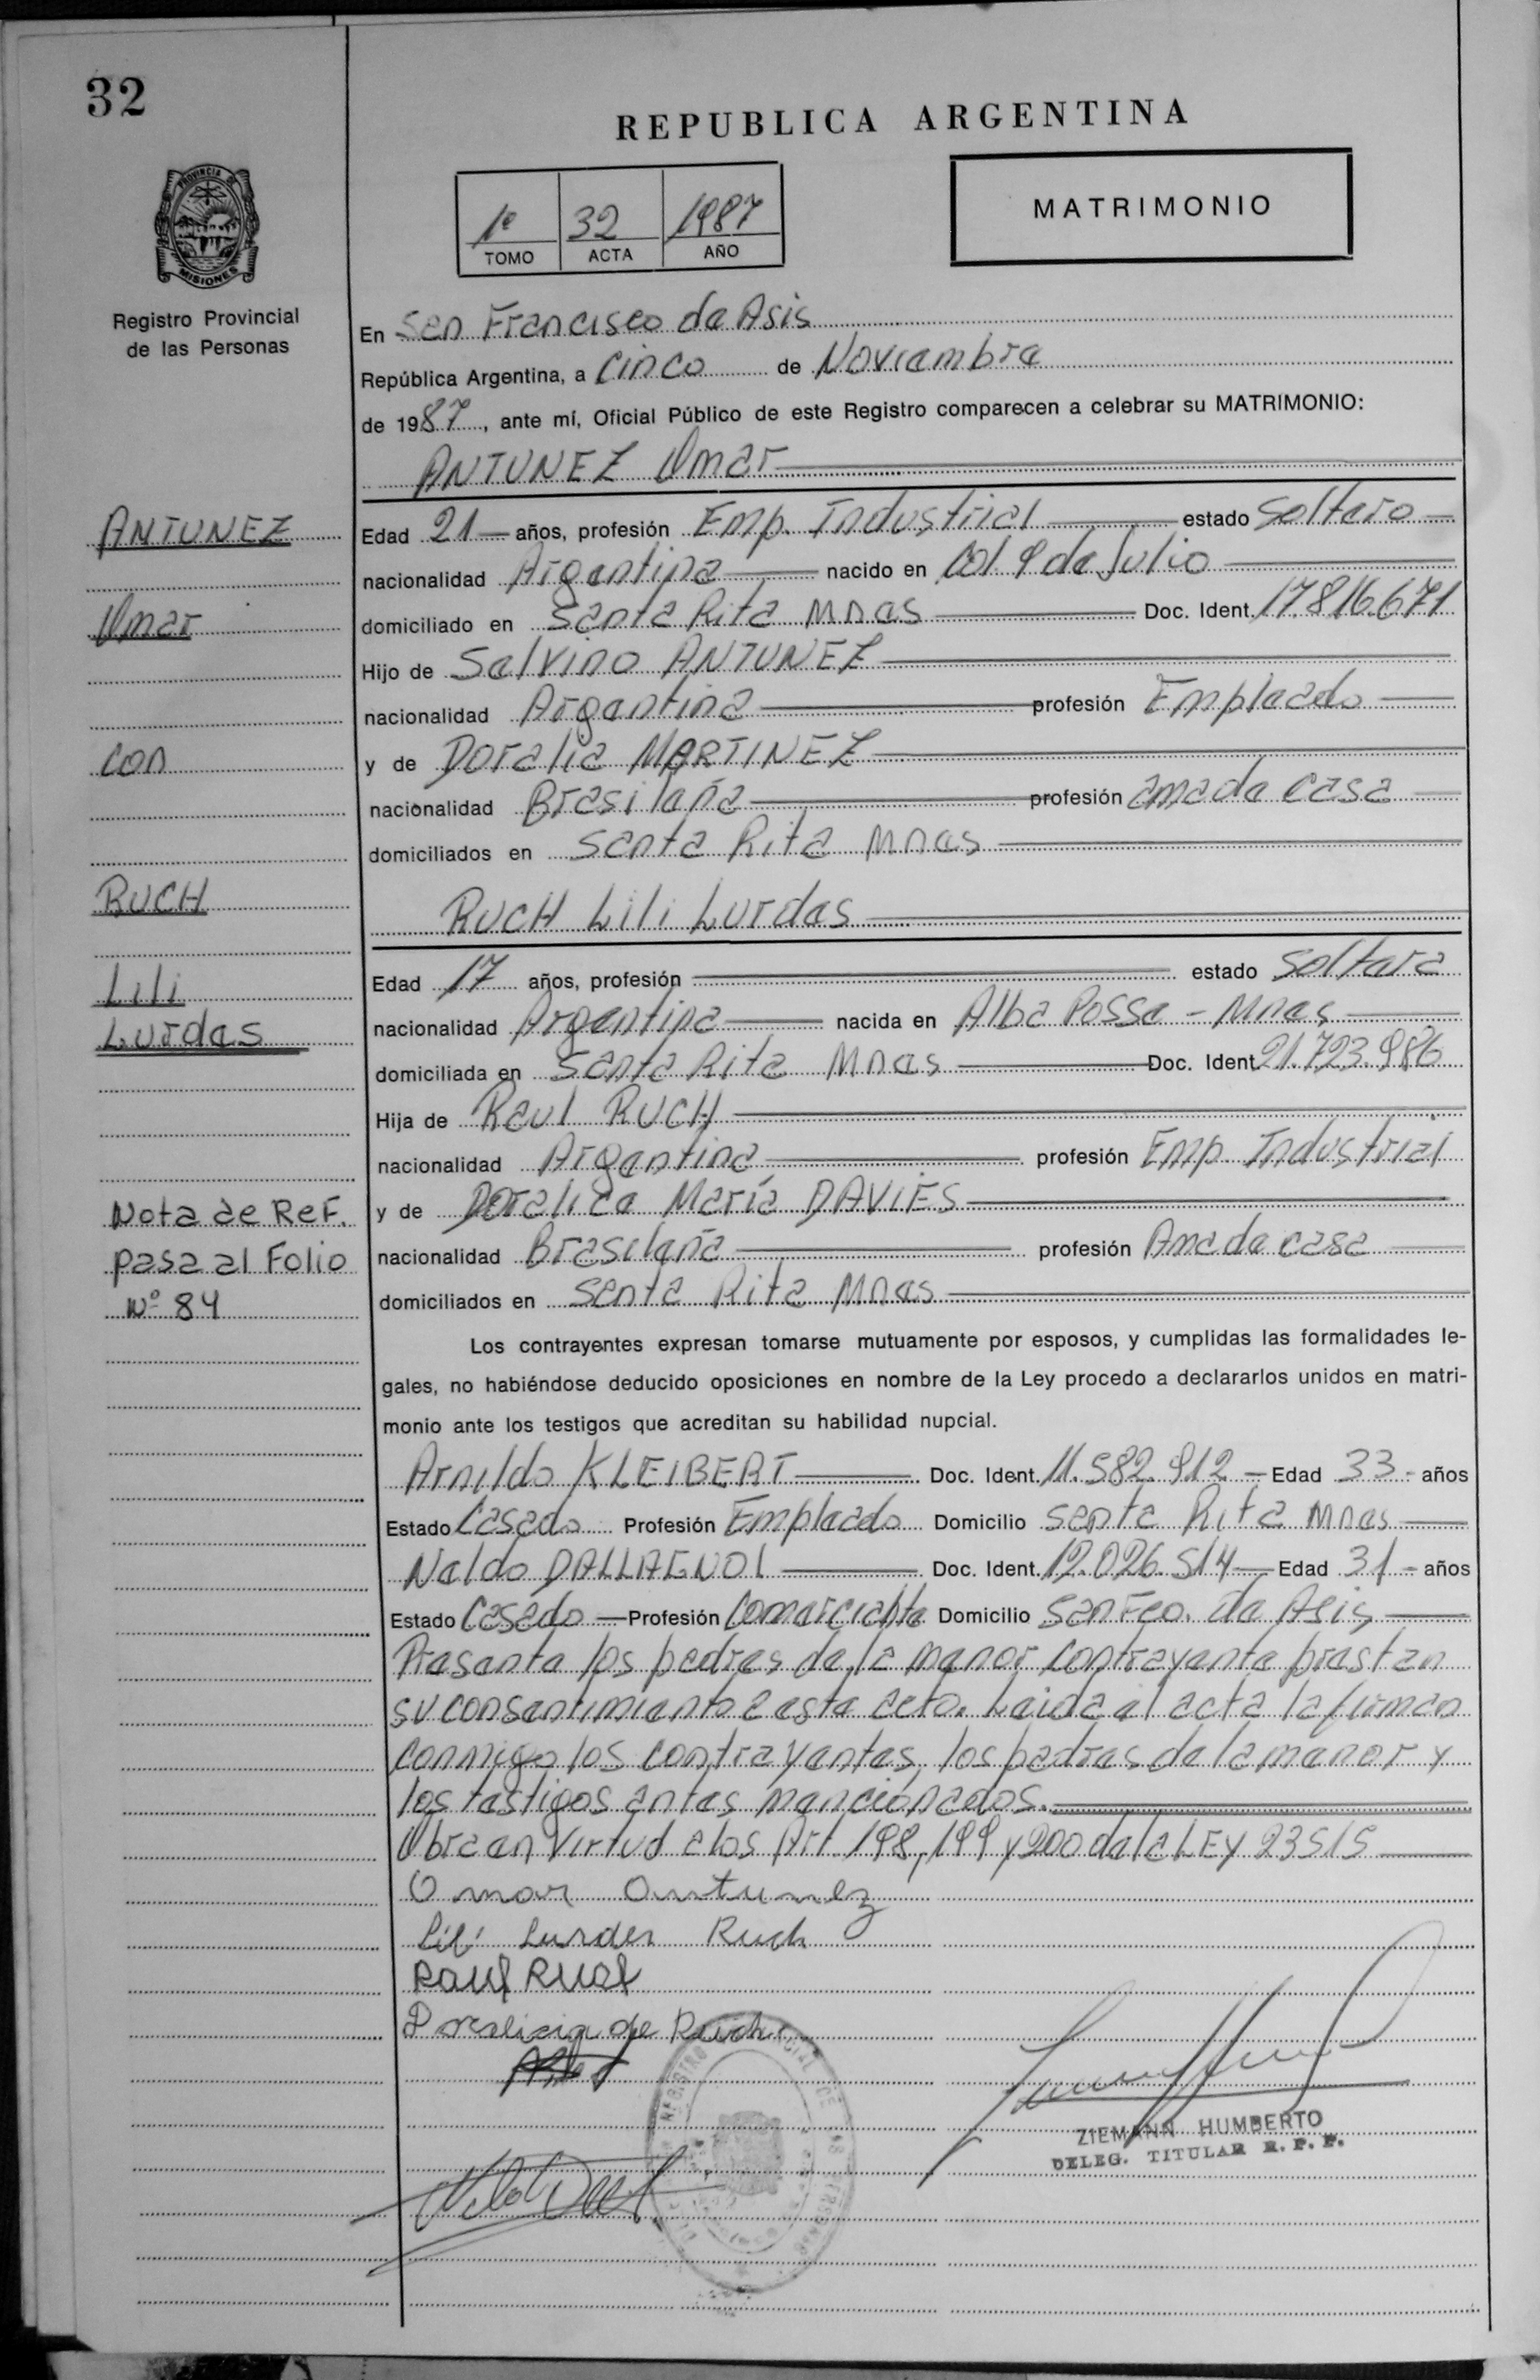 32
REPUBLICA ARGENTINA
PROVINCIA DE
MISIONES
Registro Provincial
de las Personas
1º 32 1987
TOMO ACTA AÑO
MATRIMONIO
En San Francisco de Asis
República Argentina, a Cinco de Noviembre
de 1987, ante mí, Oficial Público de este Registro comparecen a celebrar su MATRIMONIO:
ANTUNEZ Omar
ANTUNEZ
Omar
con
RUCH
Lili
Lurdes
Nota de Ref.
pasa al Folio
Nº 84
Edad 21 años, profesión Emp. Industrial estado Soltero
nacionalidad Argentina nacido en Col. 9 de Julio
domiciliado en Santa Rita Mnes Doc. Ident. 17.816.671
Hijo de Salvino ANTUNEZ
nacionalidad Argentina profesión Empleado
y de Doralia MARTINEZ
nacionalidad Brasileña profesión ama de casa
domiciliados en Santa Rita Mnes
RUCH Lili Lurdes
Edad 17 años, profesión estado Soltera
nacionalidad Argentina nacida en Alba Posse - Mnes
domiciliada en Santa Rita Mnes Doc. Ident. 21.723.986
Hija de Raul RUCH
nacionalidad Argentina profesión Emp. Industrial
y de Doralice María DAVIES
nacionalidad Brasileña profesión Ama de casa
domiciliados en Santa Rita Mnes
Los contrayentes expresan tomarse mutuamente por esposos, y cumplidas las formalidades le-
gales, no habiéndose deducido oposiciones en nombre de la Ley procedo a declararlos unidos en matri-
monio ante los testigos que acreditan su habilidad nupcial.
Arnildo KLEIBERT Doc. Ident. 11.582.912 Edad 33 años
Estado Casado Profesión Empleado Domicilio Santa Rita Mnes
Naldo DALLAGNOL Doc. Ident. 12.026.514 Edad 31 años
Estado Casado Profesión Comerciante Domicilio San Fco. de Asis
Presente los padres de la menor contrayente prestan
su consentimiento a este acto. Leida el acta la firman
conmigo los contrayentes, los padres de la menor y
los testigos antes mencionados.
Obra en Virtud a los Art. 198, 199 y 200 de la LEY 23515
Omar Antunez
Lili Lurdes Ruch
Raul Ruch
Doralicia de Ruch
ZIEMANN HUMBERTO
DELEG. TITULAR R. P. P.